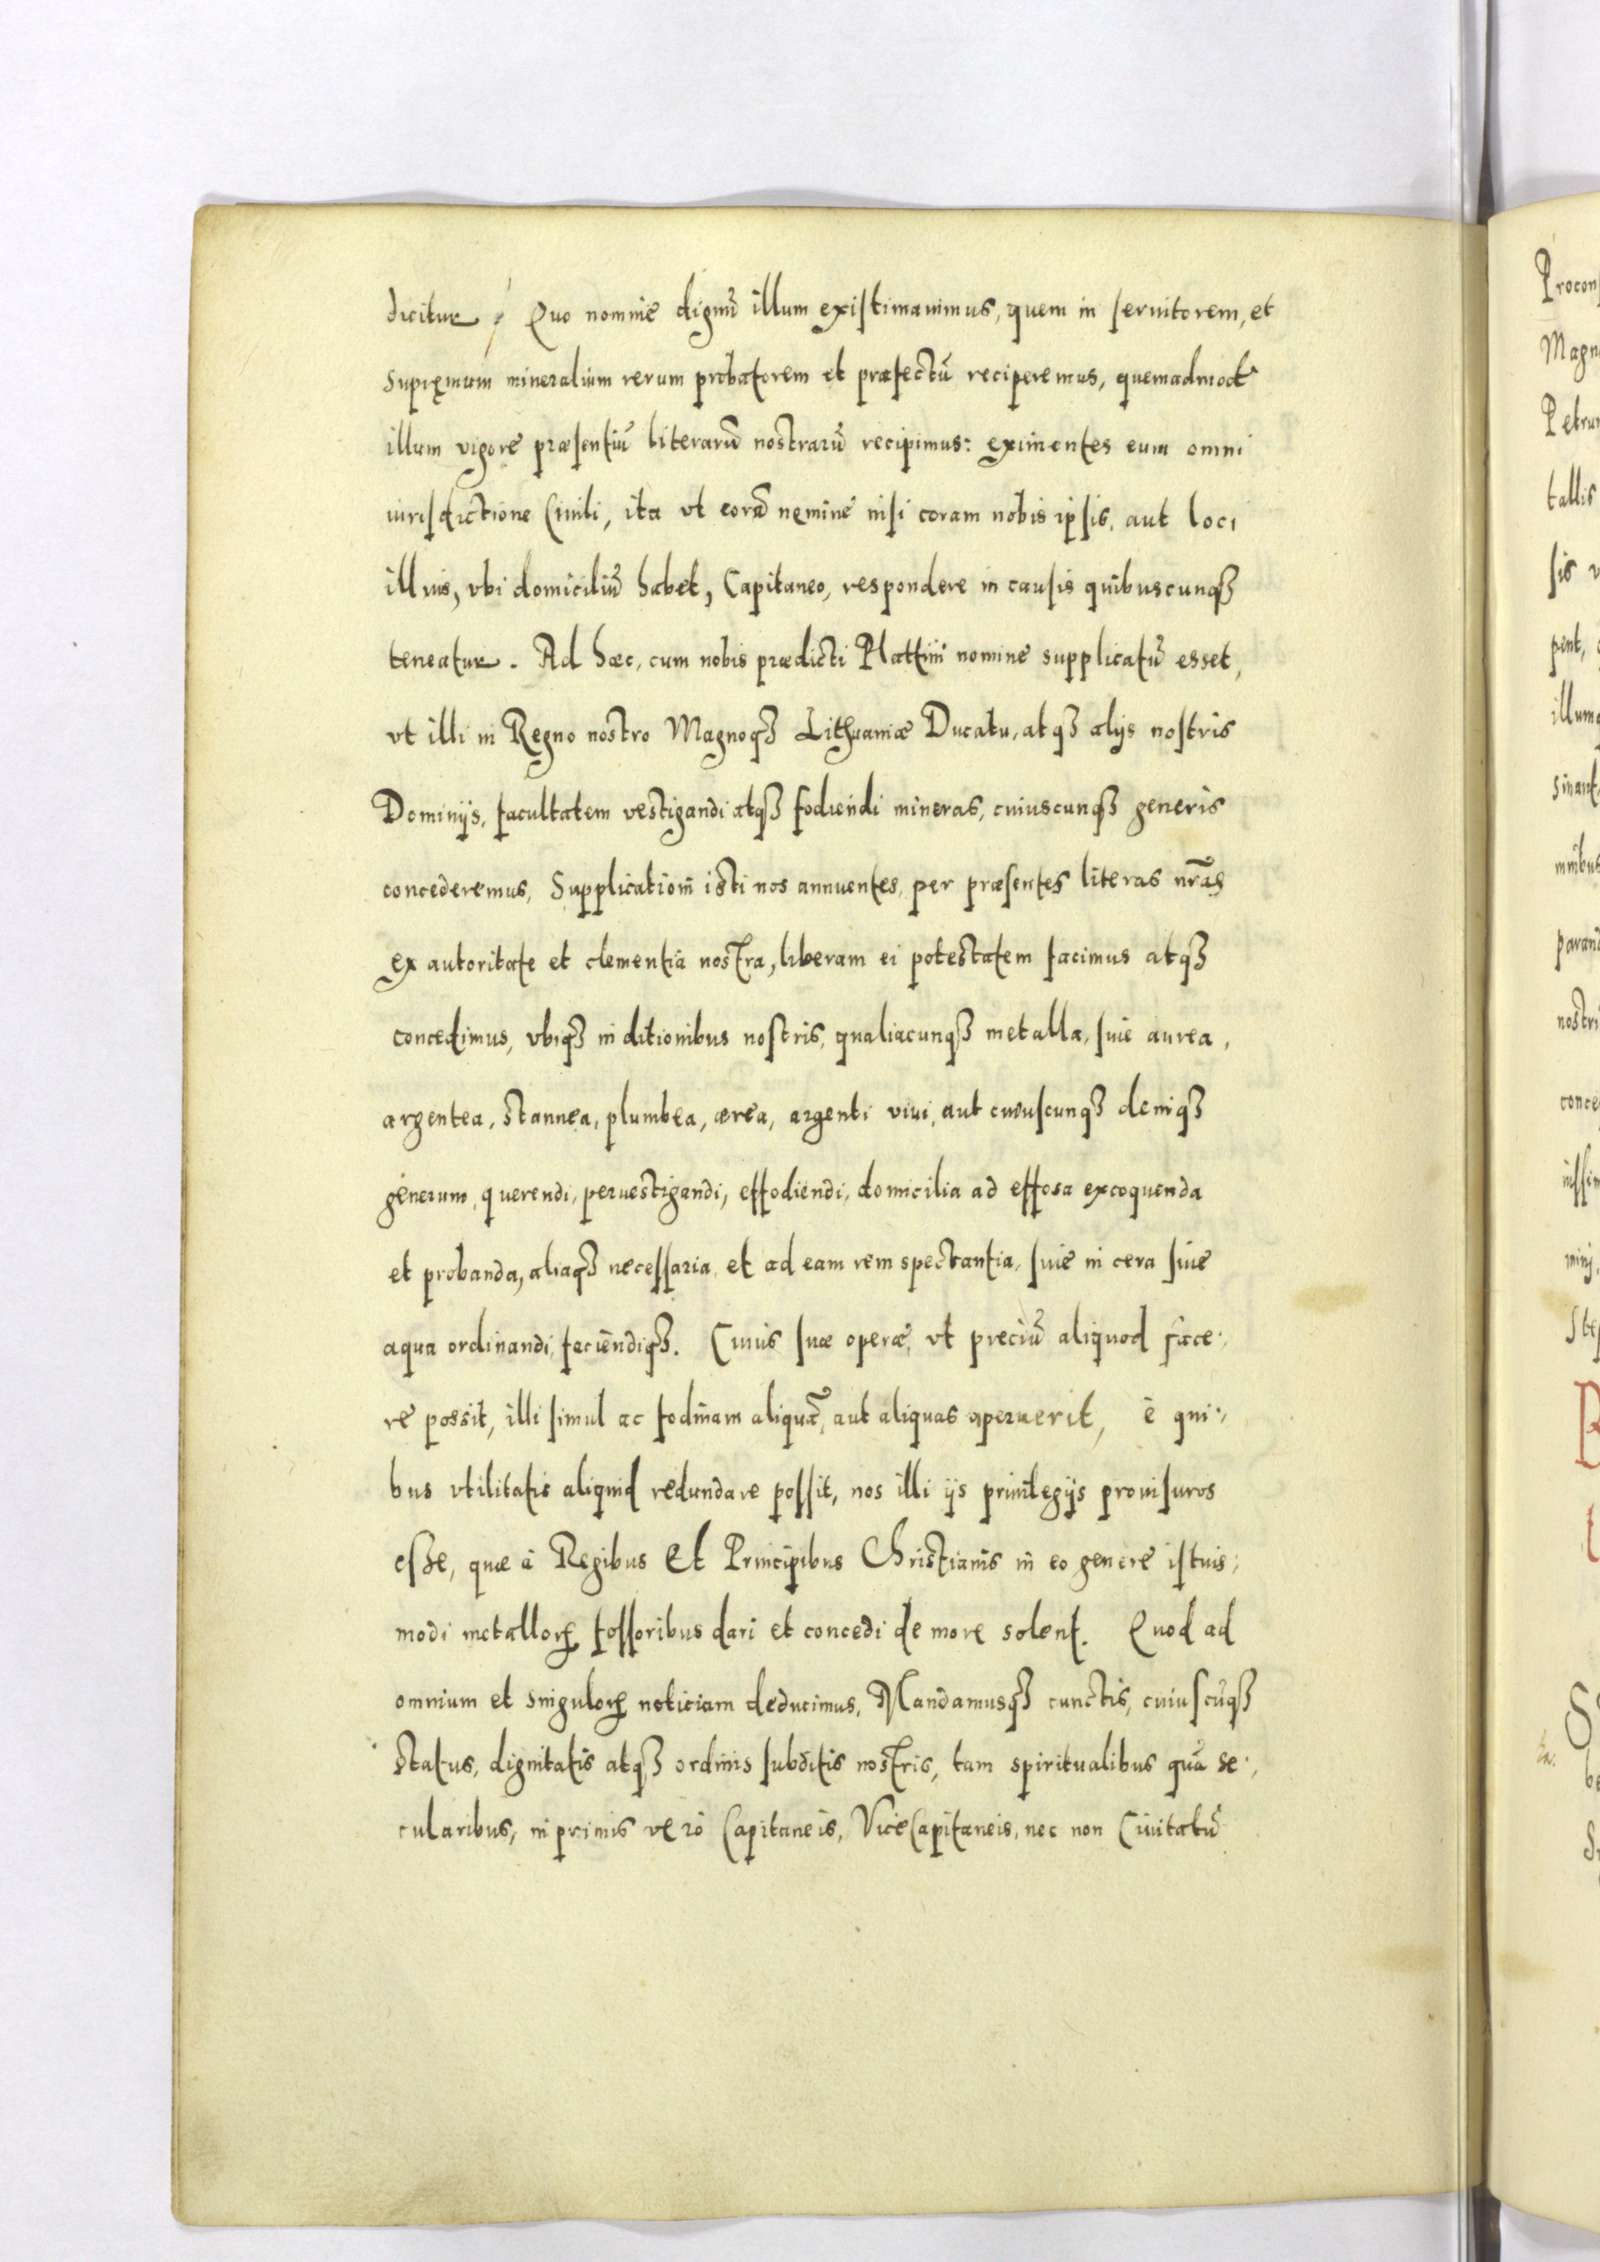 dicitur, Quo nomine dignū illum existimauimus, quem in seruitorem, et
Supremum mineralium rerum probatorem et præfectū reciperemus, quemadmod
illum vigore præsentiū literarū nostrarū recipimus: eximentes eum omni
iurisdictione Ciuili, ita vt corā nemine nisi coram nobis ipsis, aut loci
illius, vbi domiciliū habet, Capitaneo, respondere in causis quibuscunqꝫ
teneatur. Ad hæc, cum nobis prædicti Hattini nomine supplicatū esset,
vt illi in Regno nostro Magnoqꝫ Lithuaniæ Ducatu, atqꝫ alijs nostris
Dominijs, facultatem vestigandi atqꝫ fodiendi mineras, cuiuscunqꝫ generis
concederemus, Supplicationi isti nos annuentes, per præsentes literas nr̄as
ex autoritate et clementia nostra, liberam ei potestatem facimus atqꝫ
concedimus, vbiqꝫ in ditionibus nostris, qualiacunqꝫ metalla, siue aurea,
argentea, stannea, plumbea, ærea, argenti viui, aut cuiuscunqꝫ deniqꝫ
generum, querendi, peruestigandi, effodiendi, domicilia ad effosa excoquenda
et probanda, aliaqꝫ necessaria, et ad eam rem spectantia, siue in cera siue
aqua ordinandi, faciendiqꝫ. Cuius suæ operæ, vt preciū aliquod face:
re possit, illi simul ac fodinam aliquā, aut aliquas aperuerit, è qui:
bus vtilitatis aliquid redundare possit, nos illi ijs priuilegijs prouisuros
esse, quæ à Regibus Et Principibus Christianis in eo genere istuis:
modi metalloꝝ fossoribus dari et concedi de more solent. Quod ad
omnium et singuloꝝ noticiam deducimus, Mandamusqꝫ cunctis, cuiuscūqꝫ
status, dignitatis atqꝫ ordinis subditis nostris, tam spiritualibus quā se:
cularibus, in primis verò Capitaneis, ViceCapitaneis, nec non Ciuitatū